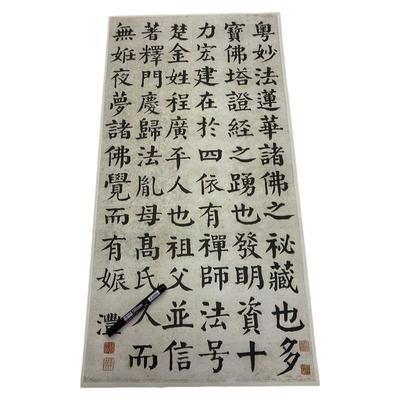 粵妙法蓮華諸佛之秘藏也多
寶佛塔證經之踴也發明資十
力宏建在於四依有禪師法号
楚金姓程廣平人也祖父並信
著釋門慶歸法胤母髙氏久而
無姙夜夢諸佛覺而有娠 灃